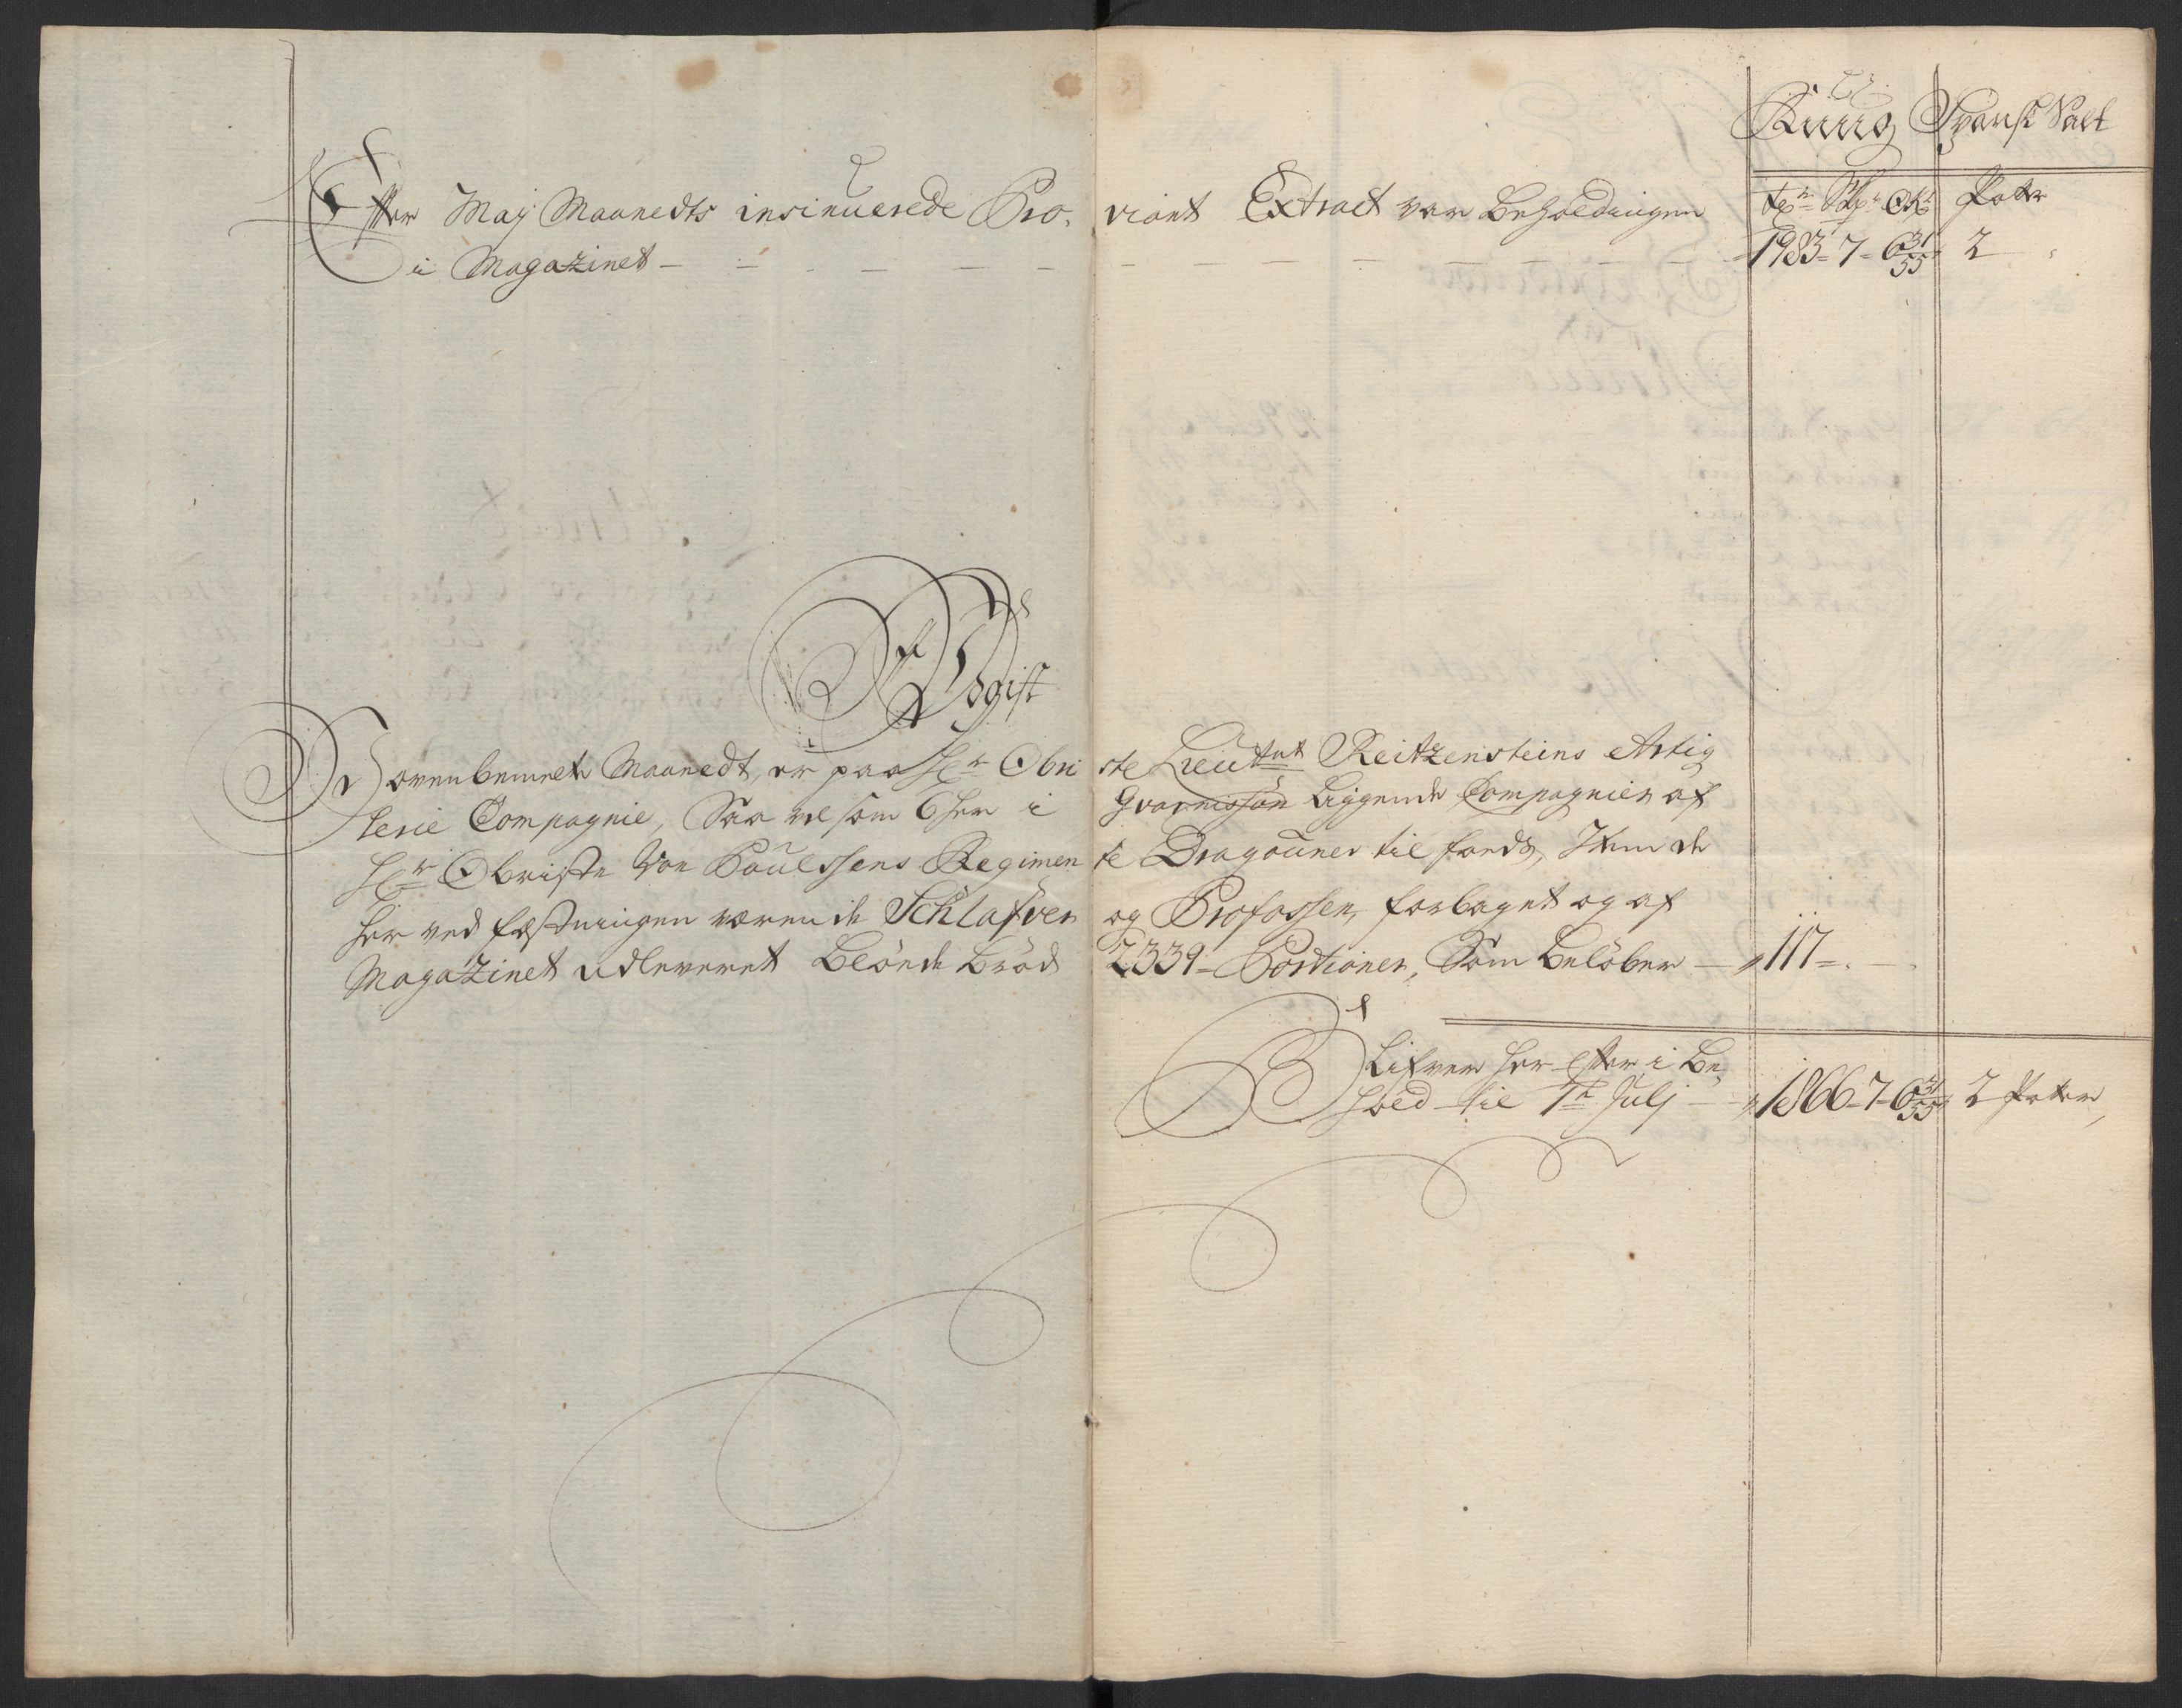 Ruug Spansk Salt
tr Skpr Otkr Potter
Efter Maj Maanedts insinuerede Proviant Extract var beholdningen
i Magazinet - - - - - - - 1983 - 7 - 6 31/55 2
Afgift
I ovenbemelte Maanedt, er paa Hr Obriste Lieutnt Reitzensteins Artig
lerie Compagnie, Saa vel som 6 her i Gvarnisson liggende Compagnier af
Hr Obriste Von Poulssens Regimente Dragouner til foeds, Item de
her ved festningen værende Schlafver og Profossen, forbagnt og af
Magazinet udleveret Blönde bröd 2339 - Portioner, Som belöber - 117 - . -
Blifver her efter i Be
hold til 1te Julj - 1866 - 7 - 6 31/55 2 Potter